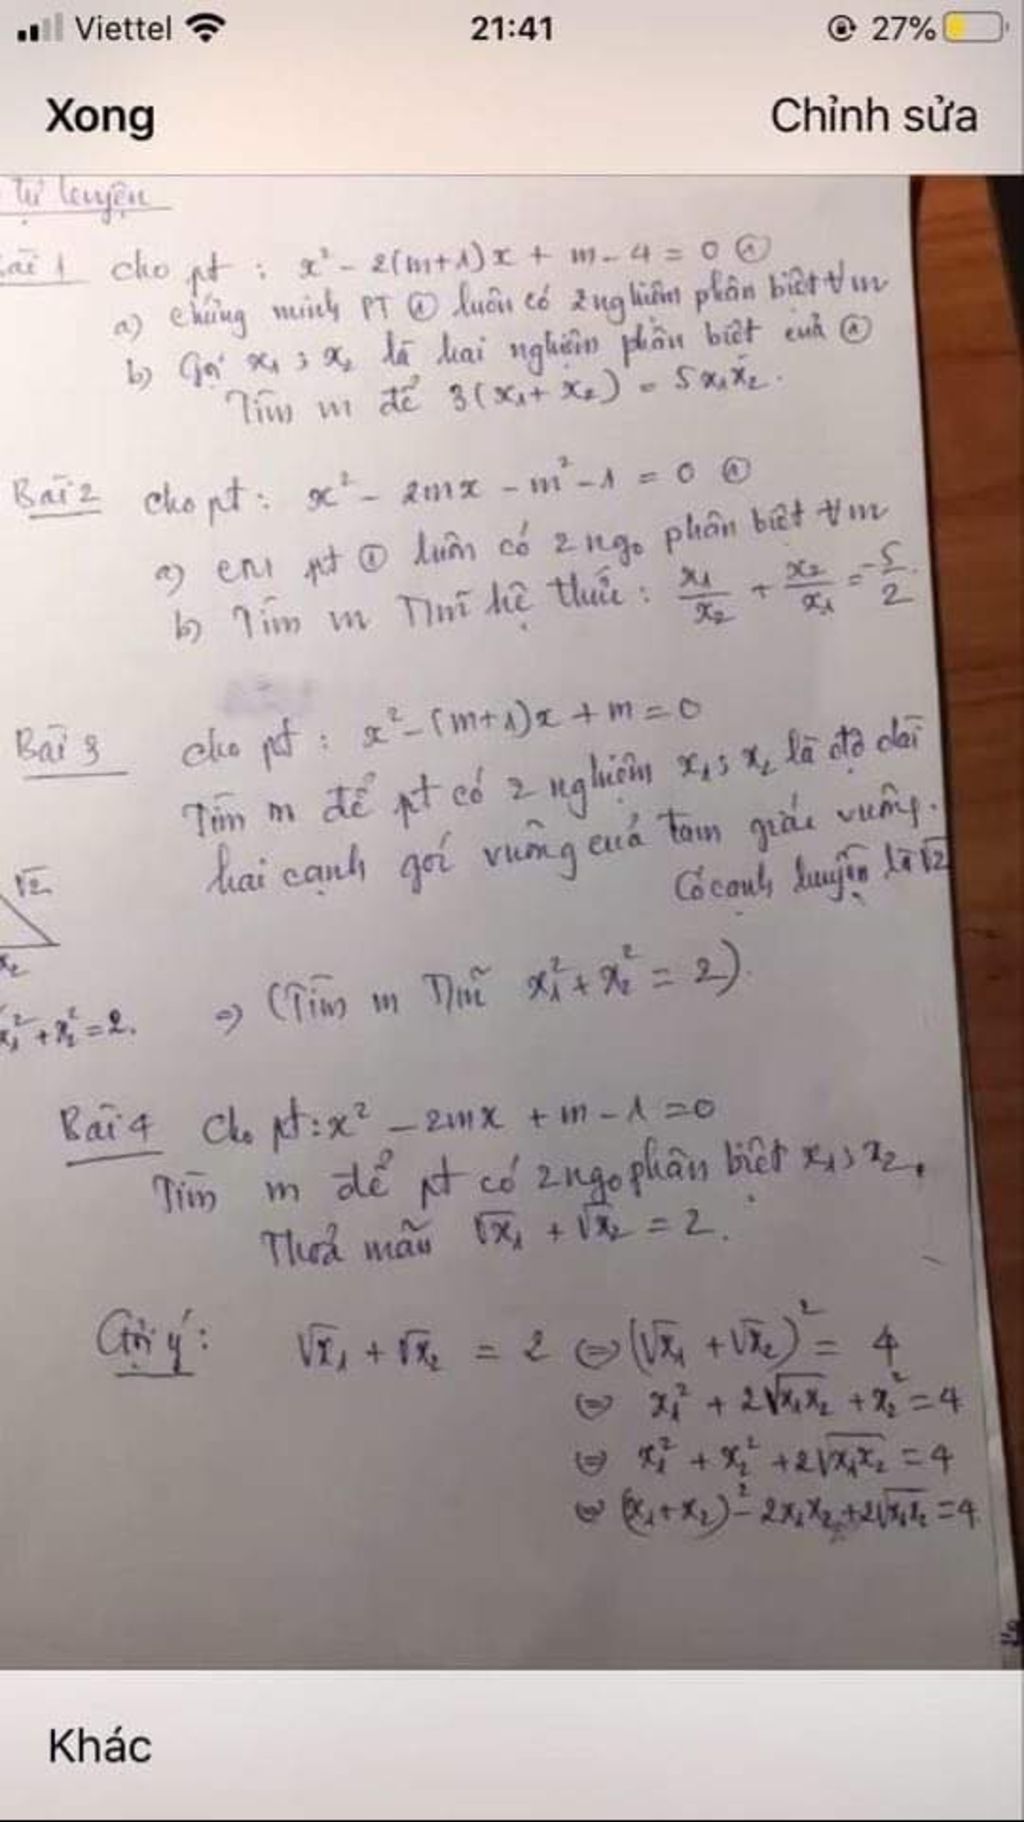 Viettel 21:41 27%
Xong Chỉnh sửa
Tự luyện
Bài 1 cho pt : x² - 2(m+1)x + m - 4 = 0 ①
a) chứng minh PT ① luôn có 2 nghiệm phân biệt ∀m
b) Gọi x₁ ; x₂ là hai nghiệm phân biệt của ①
Tìm m để 3(x₁ + x₂) = 5x₁x₂.
Bài 2 cho pt : x² - 2mx - m² - 1 = 0 ①
a) CM pt ① luôn có 2 ngo phân biệt ∀m
b) Tìm m Tmĩ hệ thức : x₁/x₂ + x₂/x₁ = -5/2
Bài 3 cho pt : x² - (m+1)x + m = 0
Tìm m để pt có 2 nghiệm x₁ ; x₂ là độ dài
hai cạnh góc vuông của tam giác vuông.
Có cạnh huyền là √2
√2
x₂
x₁² + x₂² = 2.
=> (Tìm m Tmĩ x₁² + x₂² = 2).
Bài 4 Cho pt : x² - 2mx + m - 1 = 0
Tìm m để pt có 2 ngo phân biệt x₁ ; x₂,
Thoả mãn √x₁ + √x₂ = 2.
Gợi ý : √x₁ + √x₂ = 2 <=> (√x₁ + √x₂)² = 4
<=> x₁² + 2√x₁x₂ + x₂² = 4
<=> x₁² + x₂² + 2√x₁x₂ = 4
<=> (x₁ + x₂)² - 2x₁x₂ + 2√x₁x₂ = 4
Khác